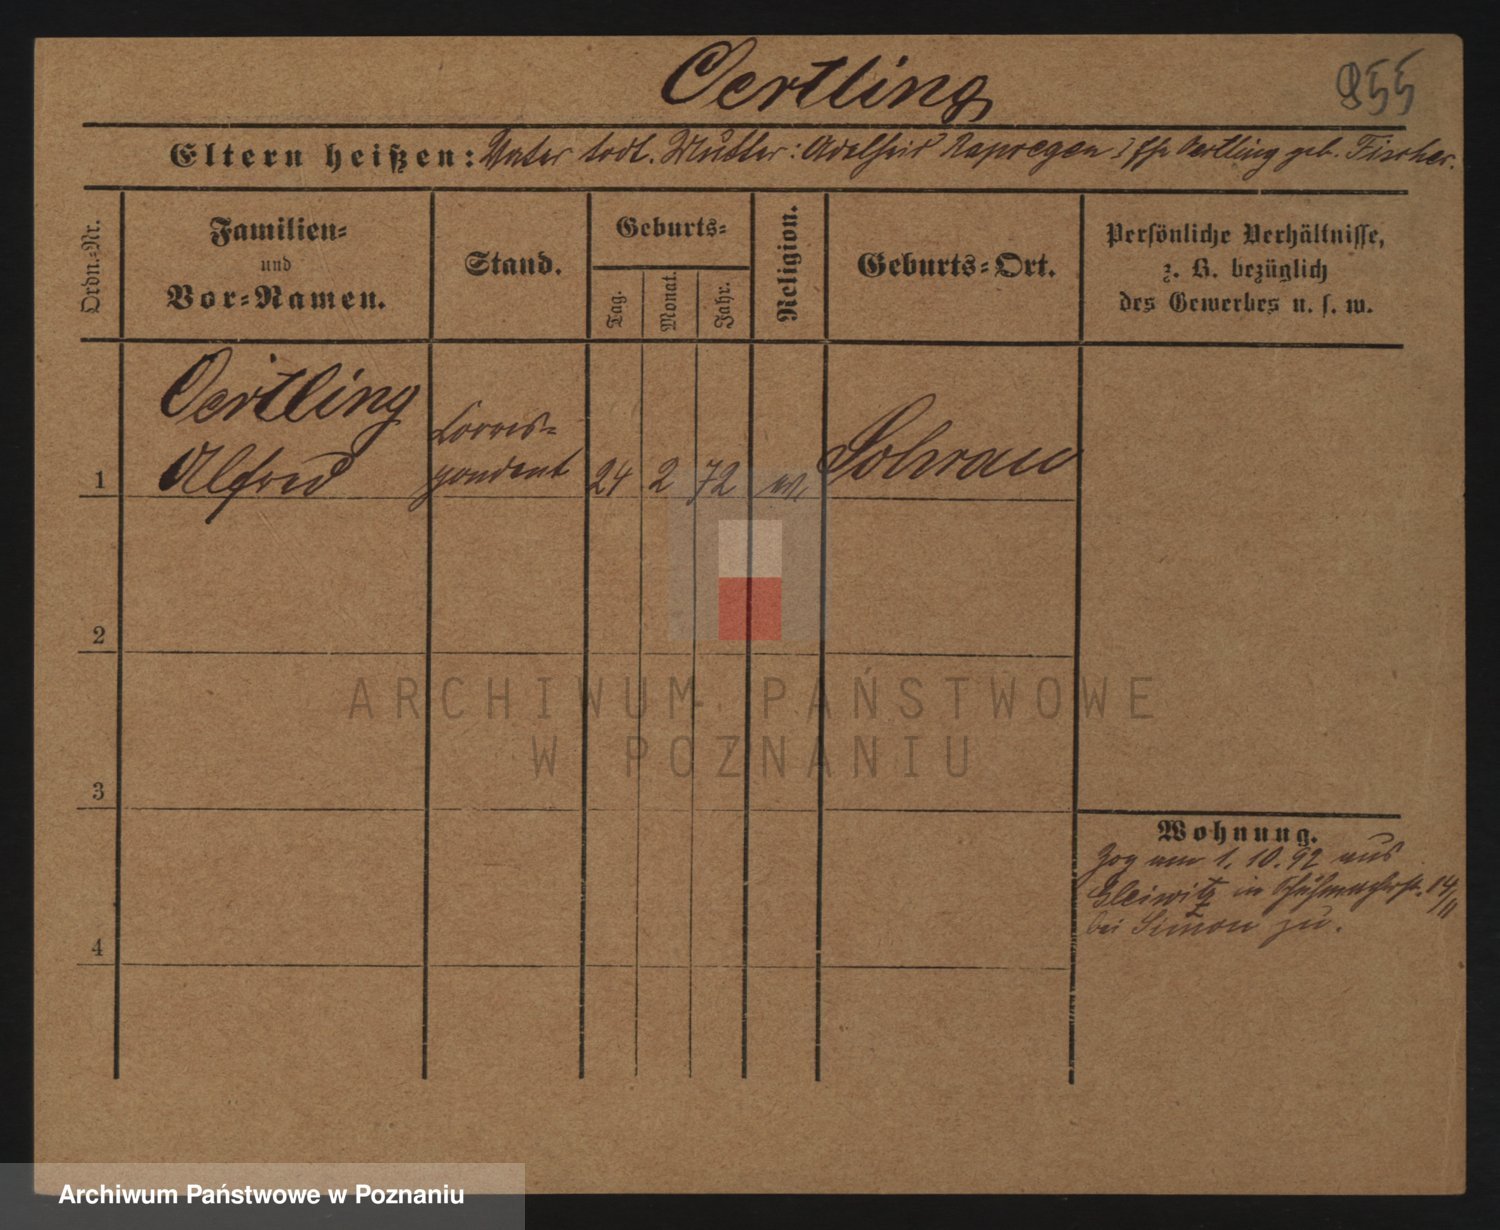 Oertling
855
Eltern heißen: Vater todt. Mutter: Adelheid Oertling geb. Fischer.
Ordn.-Nr.
Familien-
und
Vor-Namen.
Stand.
Geburts-
Tag.
Monat.
Jahr.
Religion.
Geburts-Ort.
Persönliche Verhältnisse,
z. B. bezüglich
des Gewerbes u. s. w.
Oertling
Alfred
Corres-
pondent
1
24 2 72
Sohrau
2
3
4
Wohnung.
Zog am 1. 10. 92 aus
Gleiwitz in 14/11
bei Simon zu.
ARCHIWUM PAŃSTWOWE
W POZNANIU
Archiwum Państwowe w Poznaniu